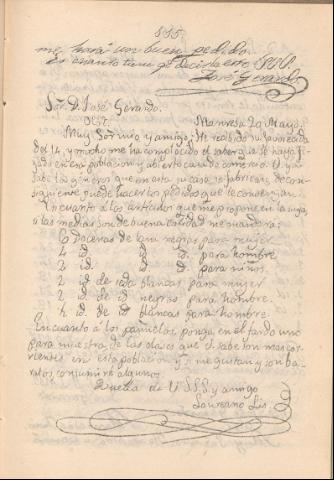 135.
me hará un buen pedido.
Es cuanto tiene qe decirle este S.S.Q.
José Gerardo.
Sr. D. José Gerardo.
Olot. Manresa 20 Mayo.
Muy Sor mio y amigo: He recibido su
del 14, y mucho me ha complacido el saber que se haya fi-
jado en esa poblacion y abierto casa de comercio. U. ya
sabe los géneros que en esta su casa se fabrican; de con-
siguiente puede hacer los pedidos que le convengan.
En cuanto á los artículos que me propone en la suya,
si las medias son de buena calidad me mandará:
6 Docenas de lana negras para mujer.
4 id. id. id. para hombre
2 id. id. id. para niños.
2 id. de seda blancas para mujer
2 id. de id negras para hombre.
4 id. de id blancas para hombre.
En cuanto á los pañuelos, ponga en el fardo uno
para muestra, de las clases que U. sabe son mas cor-
rientes en esta poblacion y si me gustan y son ba-
ratos, consumiré algunos.
Queda de U S.S.S. y amigo
Laureano Lis.